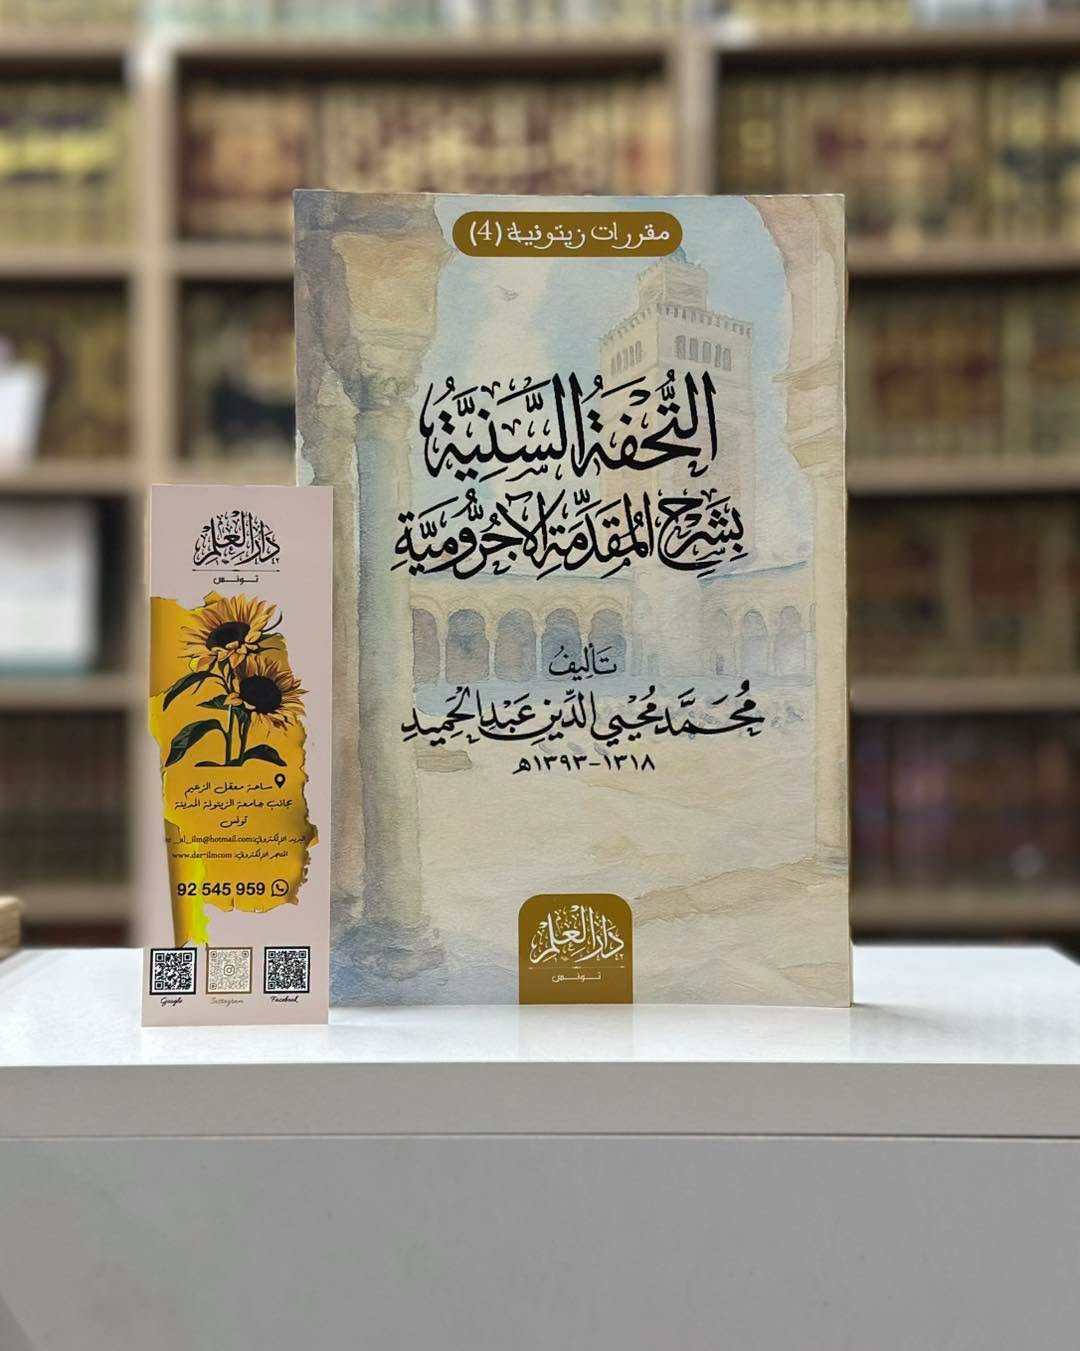 مقررات زيتونية (4)
التُّحْفَةُ السَّنِيَّةُ
بِشَرْحِ المُقَدِّمَةِ الآجُرُّومِيَّةِ
تَأليفُ
مُحَمَّد مُحْيِي الدِّينِ عَبْدِ الحَمِيدِ
١٣١٨-١٣٩٣هـ
دَارُ العِلْمِ
تونس
دَارُ العِلْمِ
تونس
ساحة معقل الزعيم
بجانب جامعة الزيتونة المدينة
تونس
البريد الإلكتروني: _al_ilm@hotmail.com
المتجر الإلكتروني: www.dar-ilmcom
92 545 959
Google
Instagram
Facebook